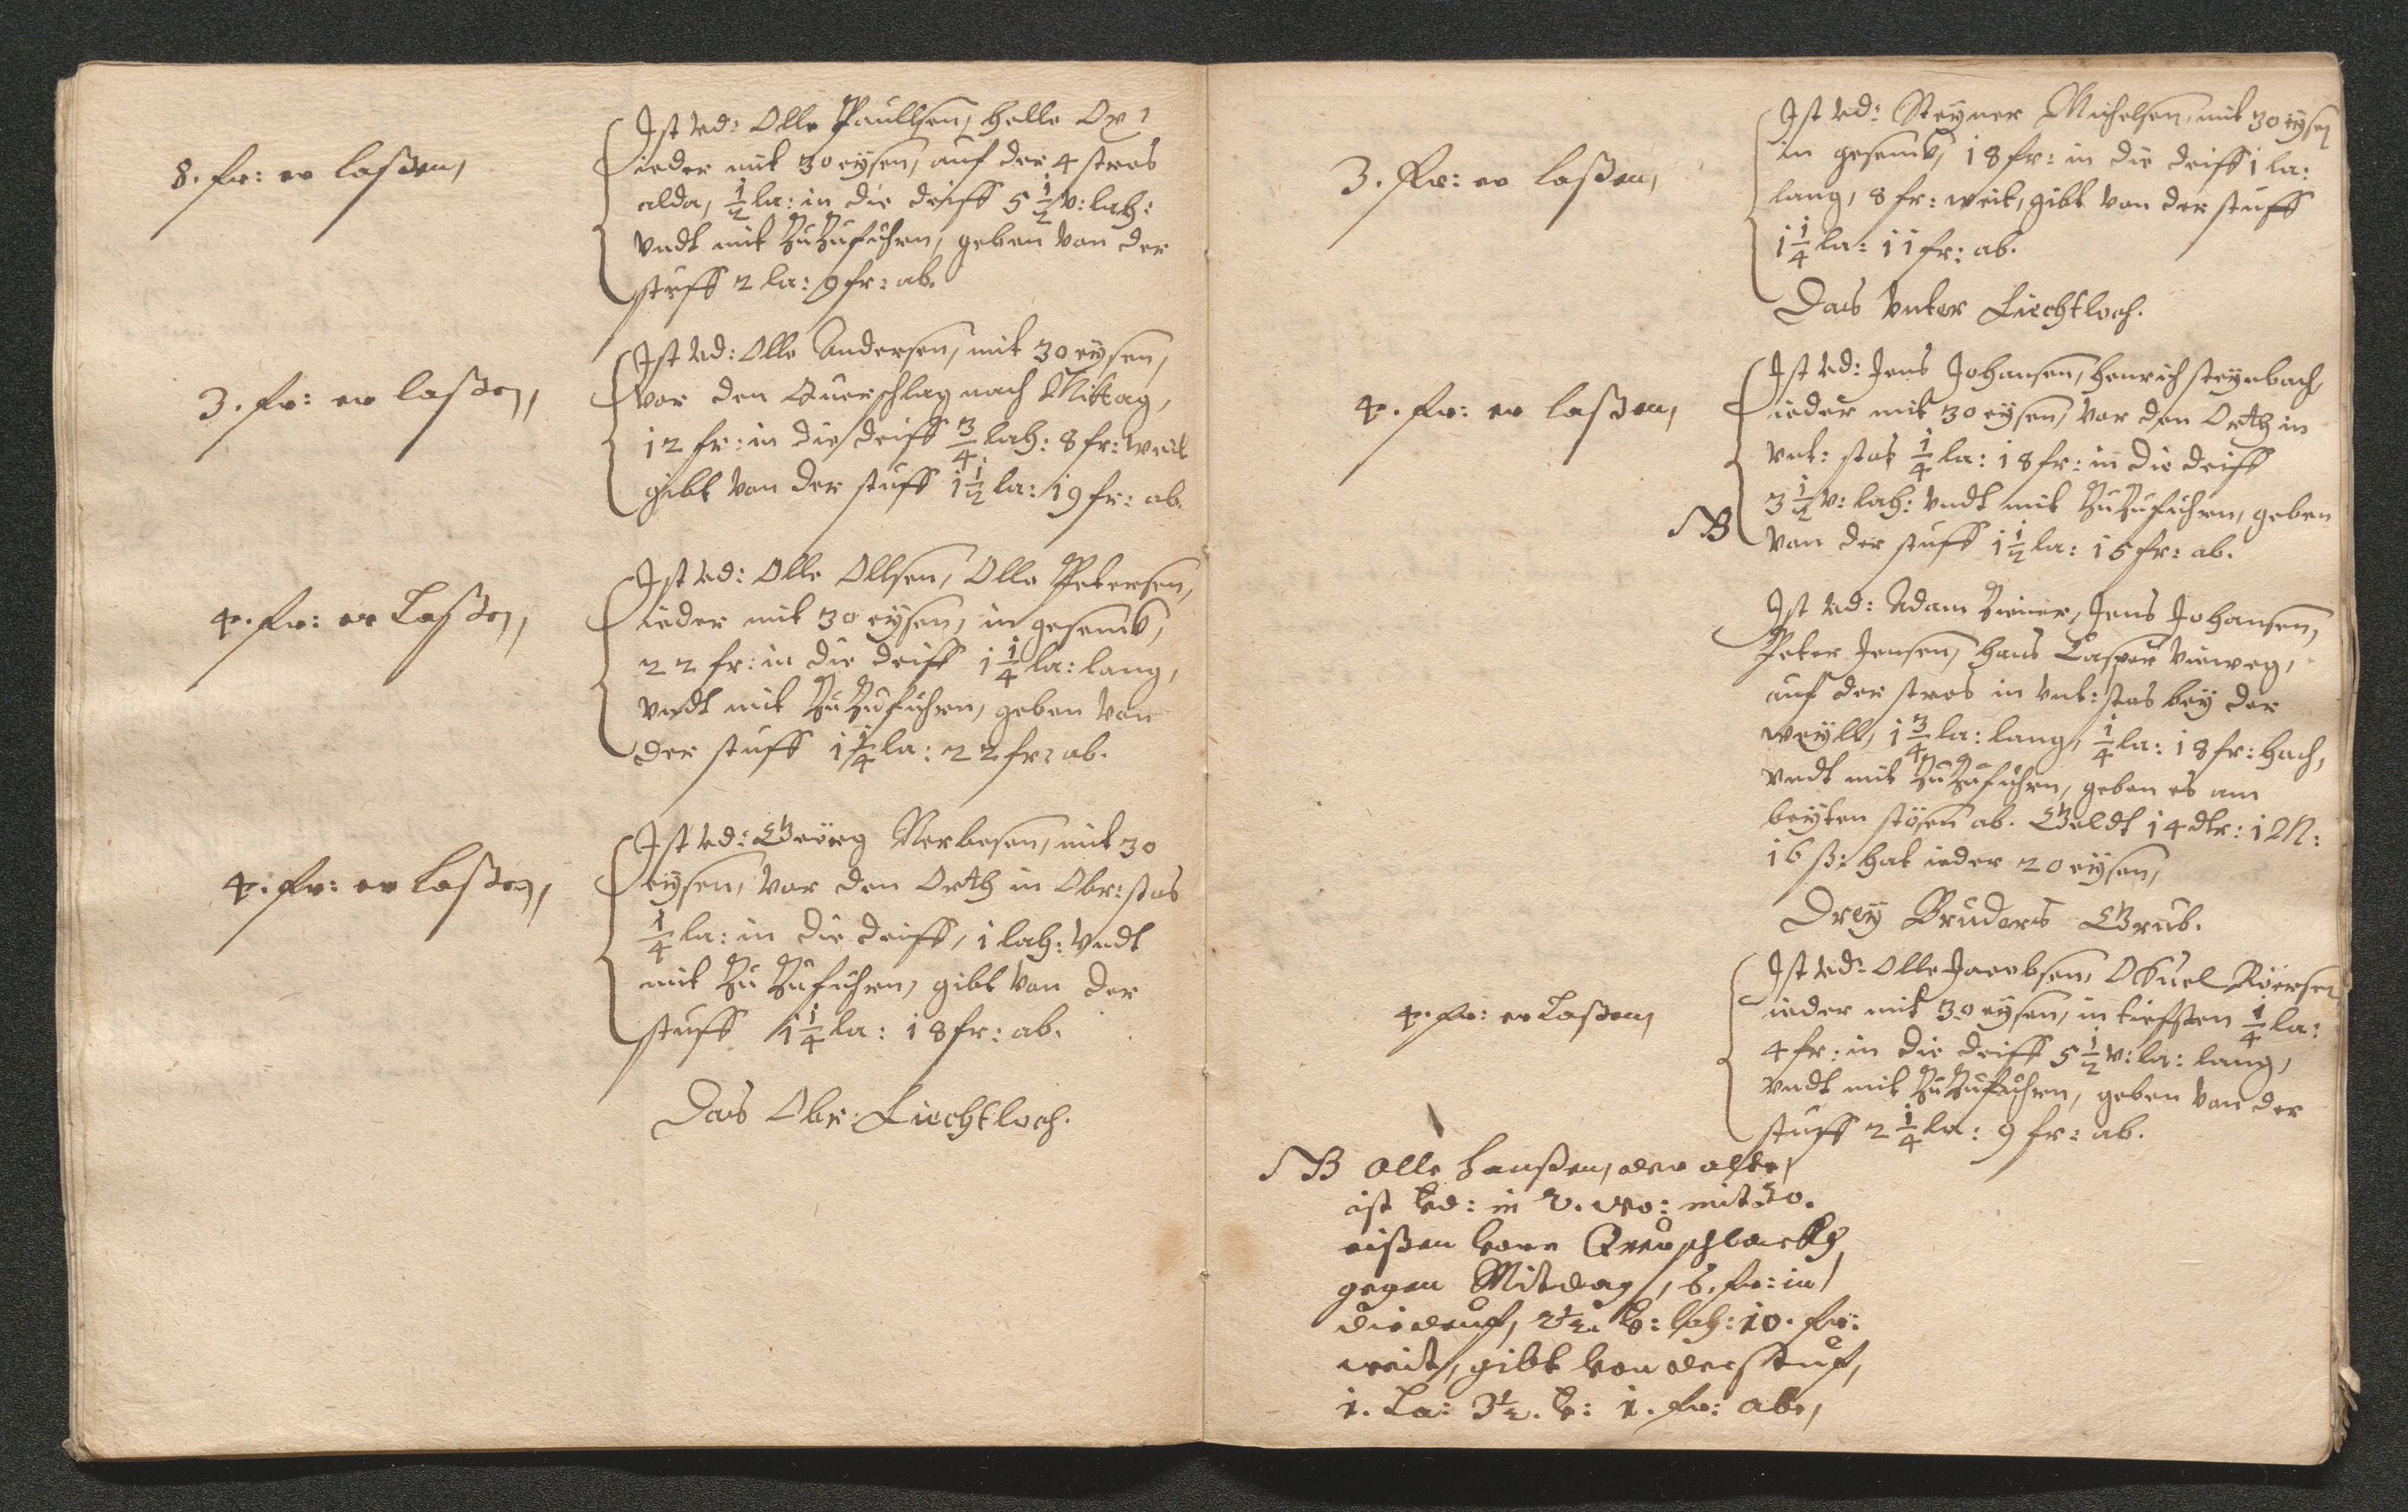 8. fr: er laßen,
Ist Ud: Olle Paullsen, helle Op 1
ieder mit 30 eysen, auf der 4 stros
alda, 1/2 la: in die deiff 5 1/2 v: lah:
Vndt mit ZuZufuhren, geben Von der
stuff 2 la: 9 fr: ab.
3. fr: er laßen,
Ist Ud: Olle Andersen, mit 30 eysen,
Vor den Querschlag nach Mittag,
12 fr: in die deiff 3/4 lah: 8 fr: weit
gibt Von der stuff 1 1/2 la: 19 fr: ab.
4. fr: er Laßen,
Ist Ud: Olle Ollsen, Olle Petersen,
ieder mit 30 eysen, in gesenck,
22 fr: in die deiff 1 1/4 la: lang,
Vndt mit ZuZufuhren, geben Von
der stuff 1 1/4 la: 22 fr: ab.
4. fr: er laßen,
Ist Ud: Georg Nerbesen, mit 30
eysen, Vor den Orth in Obr: stos
1/4 la: in die deiff, 1 lah: Vndt
mit ZuZufuhren, gibt Von der
stuff 1 1/4 la: 18 fr: ab.
Das Obr: Liechtloch.
3. fr: er laßen,
Ist Ud: Steyner Michelsen, mit 30 eysen
in gesenck, 18 fr: in die deiff 1 la:
lang, 8 fr: weit, gibt Von der stuff
1 1/4 la: 11 fr: ab.
Das Vnter Liechtloch.
4. fr: er laßen,
Ist Ud: Jens Johansen, Henrich Steynbach,
ieder mit 30 eysen, Vor den Orth in
Vnt: stos 1/4 la: 18 fr: in die deiff
3 1/2 v: lah: Vndt mit ZuZufuhren, geben
NB Von der stuff 1 1/2 la: 15 fr: ab.
Ist Ud: Adam Ziener, Jens Johansen,
Peter Jensen, Hans Casper Vieweg,
auf der stros in Vnt: stos bey der
weyll, 1 3/4 la: lang, 1/4 la: 18 fr: hoch,
Vndt mit ZuZufuhren, geben es am
beyten stösen ab. Geldt 14 dlr: 1 M:
16 ß: hat ieder 20 eysen,
Drey Bruders Grub.
4. fr: er Laßen,
Ist Ud: Olle Jacobsen, Röersen
ieder mit 30 eysen, in tieffsten 1/4 la:
4 fr: in die deiff 5 1/2 v: la: lang,
Vndt mit ZuZufuhren, geben Von der
stuff 2 1/4 la: 9 fr: ab.
NB Olle Hanßen, der alte,
ist Vd: in 2. wo: mit 30.
eißen Vorn Querschlackh
gegen Mitdag, 6. fr: in
die deuf, 2 1/2. V: lah: 10. fr:
weit, gibt Von der stuf,
1. La: 3 1/2. V: 1. fr: ab,